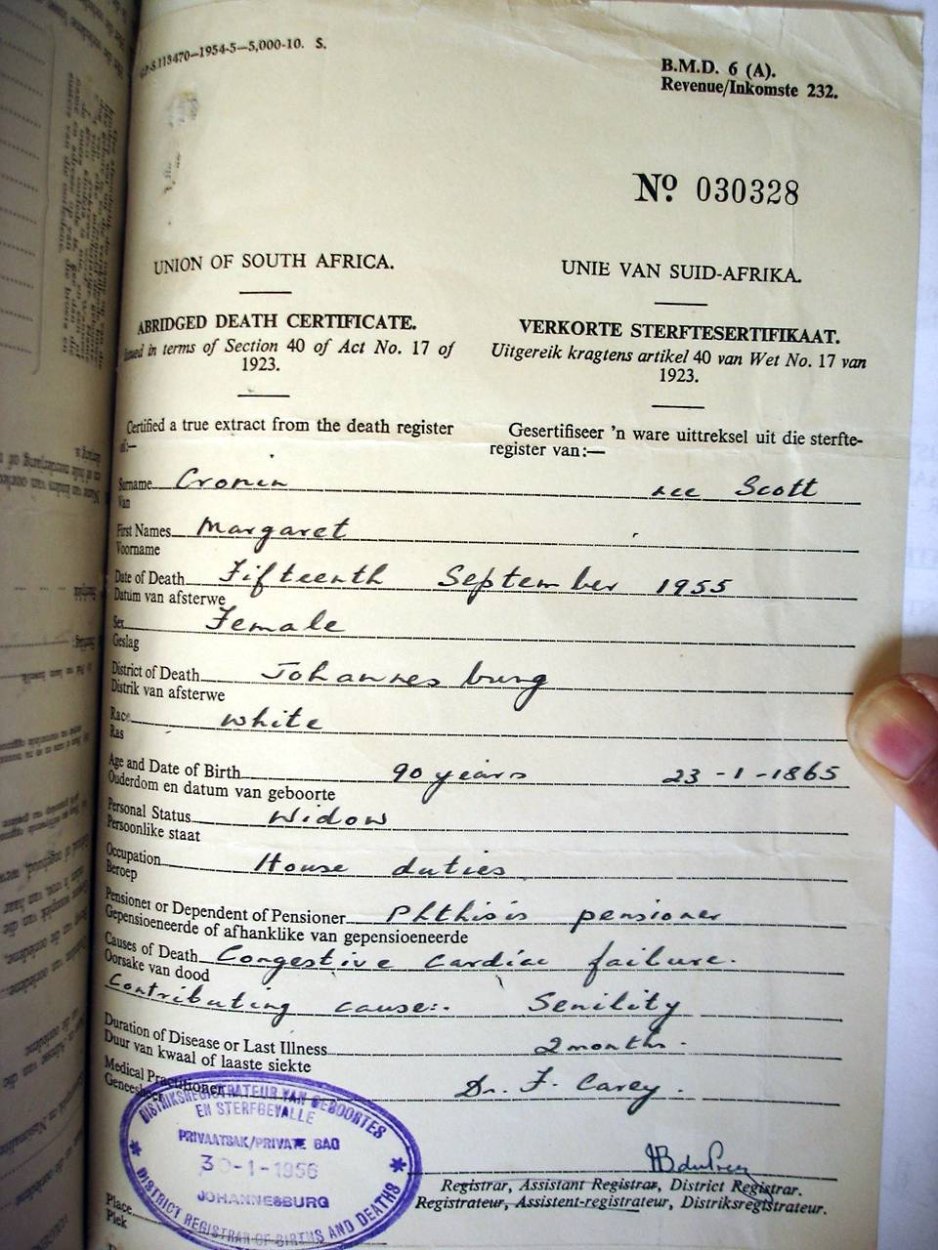 G.P.-S.113470—1954-5—5,000-10. S.
B.M.D. 6 (A).
Revenue/Inkomste 232.
No 030328
UNION OF SOUTH AFRICA.
UNIE VAN SUID-AFRIKA.
ABRIDGED DEATH CERTIFICATE.
Issued in terms of Section 40 of Act No. 17 of
1923.
VERKORTE STERFTESERTIFIKAAT.
Uitgereik kragtens artikel 40 van Wet No. 17 van
1923.
Certified a true extract from the death register
of:—
Gesertifiseer 'n ware uittreksel uit die sterfte-
register van:—
Surname Cronin nee Scott
Van
First Names Margaret
Voorname
Date of Death Fifteenth September 1955
Datum van afsterwe
Sex Female
Geslag
District of Death Johannesburg
Distrik van afsterwe
Race white
Ras
Age and Date of Birth 90 years 23-1-1865
Ouderdom en datum van geboorte
Personal Status Widow
Persoonlike staat
Occupation House duties
Beroep
Pensioner or Dependent of Pensioner Phthisis pensioner
Gepensioeneerde of afhanklike van gepensioeneerde
Causes of Death Congestive cardiac failure.
Oorsake van dood
Contributing cause:- Senility
Duration of Disease or Last Illness 2 months.
Duur van kwaal of laaste siekte
Medical Practitioner Dr. F. Carey.
Geneesheer
DISTRIKSREGISTRATEUR VAN GEBOORTES
EN STERFGEVALLE
PRIVAATSAK/PRIVATE BAG
30-1-1956
JOHANNESBURG
DISTRICT REGISTRAR OF BIRTHS AND DEATHS
Registrar, Assistant Registrar, District Registrar.
Registrateur, Assistent-registrateur, Distriksregistrateur.
Place
Plek